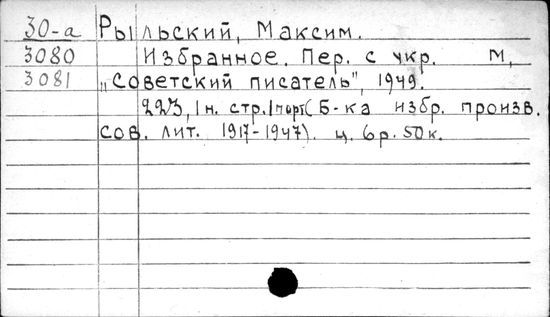 30-а Рыльский, Максим.
3080 Избранное. Пер. с укр. М,
3081 „Советский писатель", 1949.
223, 1 н. стр. 1 порт (Б-ка избр. произв.
сов. лит. 1917-1947). ц. 6 р. 50 к.